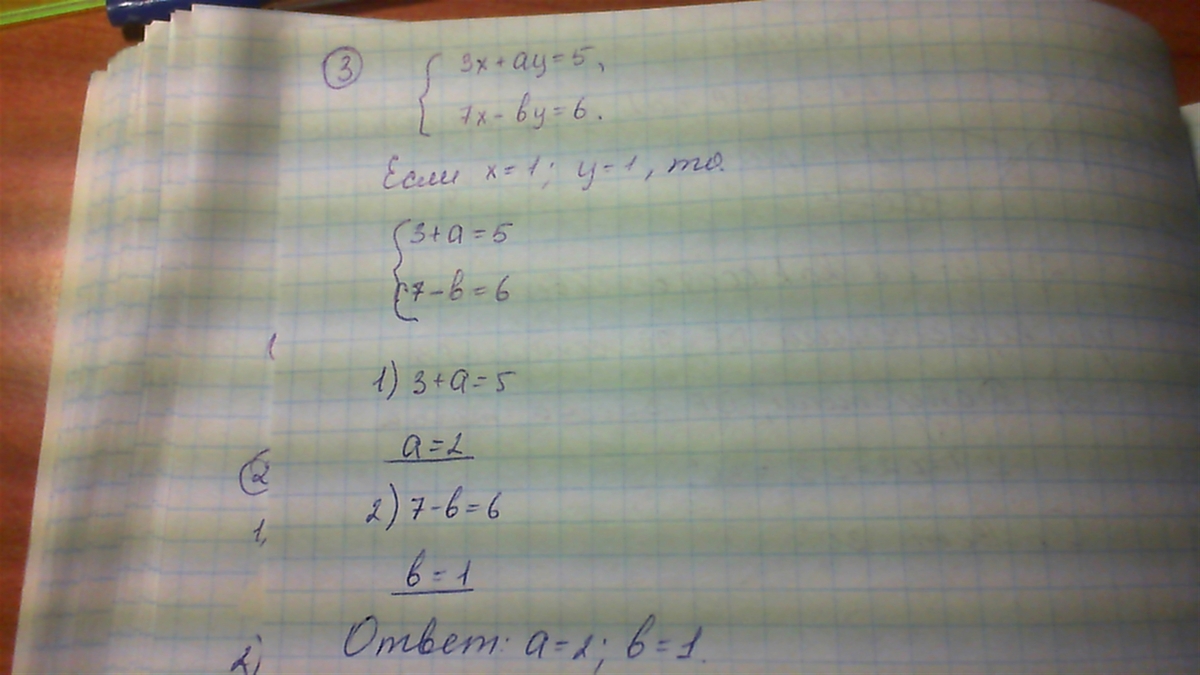 3
3x+ay=5,
7x-by=6.
Если x=1; y=1, то.
3+a=5
7-b=6
1) 3+a=5
a=2
2) 7-b=6
b=1
Ответ: a=2; b=1.
(
2
1,
2)